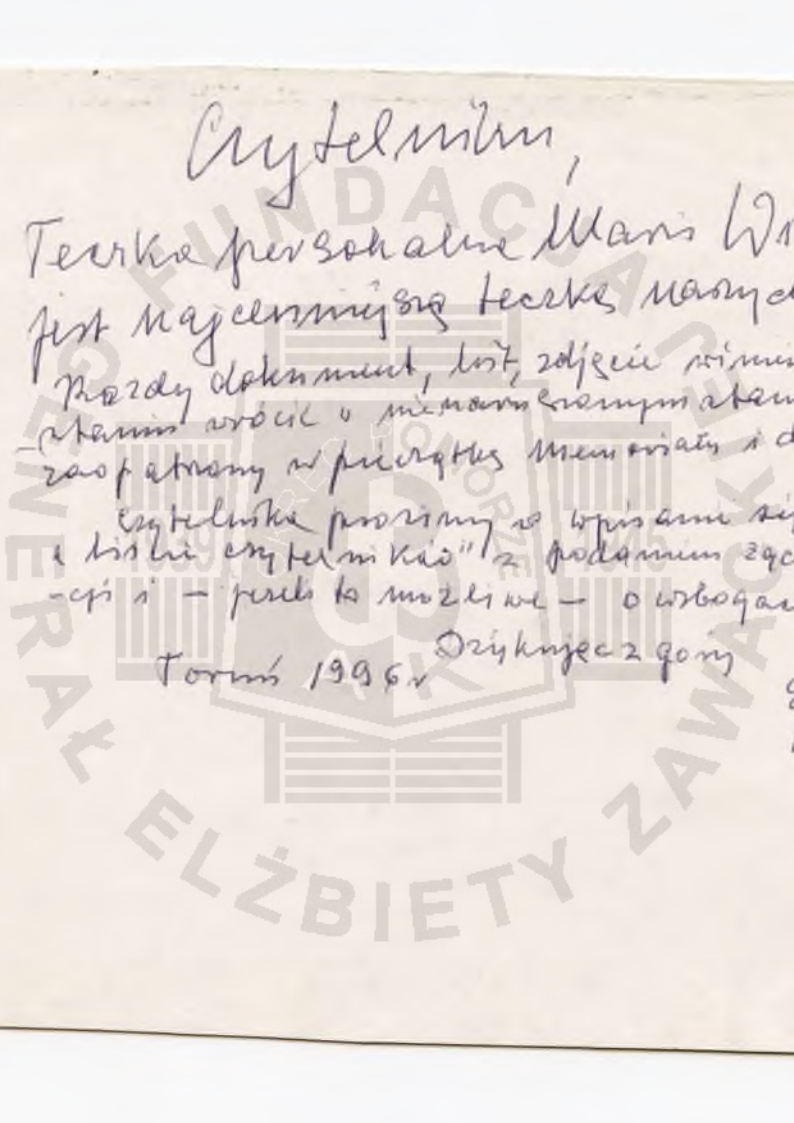 Czytelniku,
Teczka personalna Marii Wi
jest najcenniejszą teczką naszyc
Każdy dokument, list, zdjęcie winien
stanie wrócić w nienaruszonym stan
zaopatrzony w pieczątkę Memoriału i d
Czytelnika prosimy o wpisanie się
„liście czytelników" z podaniem
-cji i – jeżeli to możliwe – o wzbogac
Dziękując z góry
Toruń 1996 r
FUNDACJA
GENERAŁ ELŻBIETY ZAWAC
ARCHIWUM POMORZE
1939 1945
AK